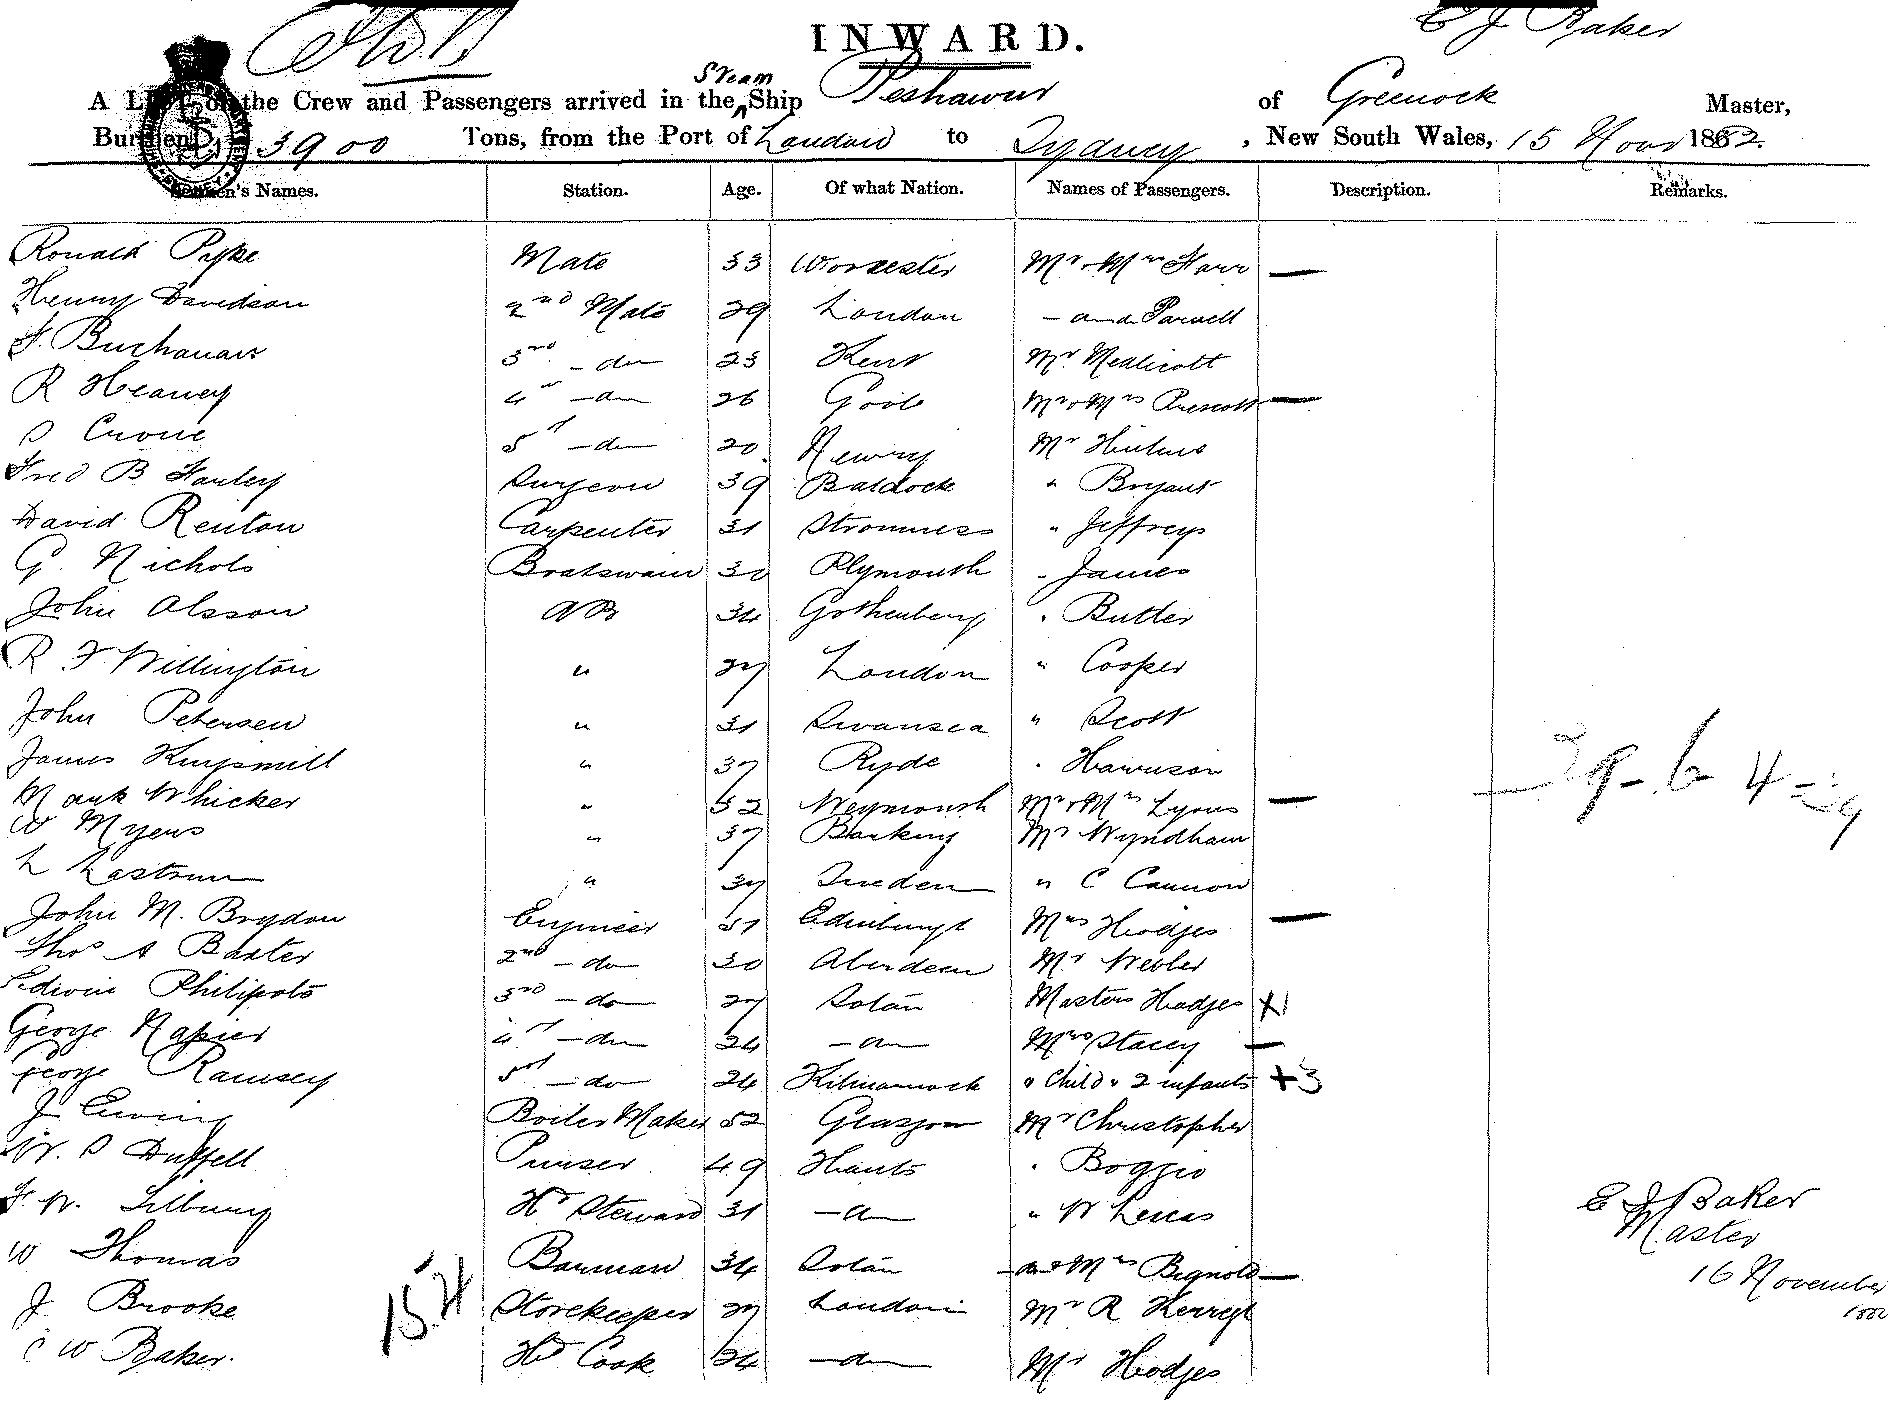 INWARD.
C J Baker
A List of the Crew and Passengers arrived in the Steam Ship Peshawur of Greenock Master,
Burthen 3900 Tons, from the Port of London to Sydney, New South Wales, 15 Novr 1882.
Names. Station. Age. Of what Nation. Names of Passengers. Description. Remarks.
Ronald Pyke Mate 33 Worcester Mr & Mrs Farr —
Henry Davidson 2nd Mate 29 London - and Parnell
F. Buchanan 3rd - do 23 Kent Mr Medlicott
R Heaney 4th - do 26 Goole Mr & Mrs Prescott —
Crone 5th - do 20 Newry Mr
Fred B Farley Surgeon 39 Baldock " Bryant
David Renton Carpenter 31 Stromness " Jeffreys
G. Nichols Boatswain 30 Plymouth " James
John Olsson AB 34 Gothenberg " Butler
R F Willington " 27 London " Cooper
John Petersen " 31 Swansea " Scott
James Kingsmill " 37 Ryde " Harrison
Mark Whicker " 52 Weymouth Mr & Mrs Lyons —
W Myers " 37 Barking Mr Wyndham
L " 37 Sweden " C Cannon
John M. Brydon Engineer 51 Edinburgh Mrs Hodges —
Thos A Baxter 2nd - do 30 Aberdeen Mr Webber
Edwin Philipots 3rd - do 27 Soton Masters Hodges X1
George Napier 4th - do 24 - do Mrs Stacey —
George Ramsey 5th - do 24 Kilmarnock " Child & 2 infants +3
J Ewing Boiler Maker 52 Glasgow Mr Christopher
W. S Duffell Purser 49 Hants " Boggio
F W. Silbury Hd Steward 31 - do " W Lucas
W Thomas Barman 34 Soton - and Mrs Bignold —
J Brooke Storekeeper 27 London Mr R
C W Baker. Hd Cook 24 - do Mr Hodges
E J Baker
Master
16 November
1882